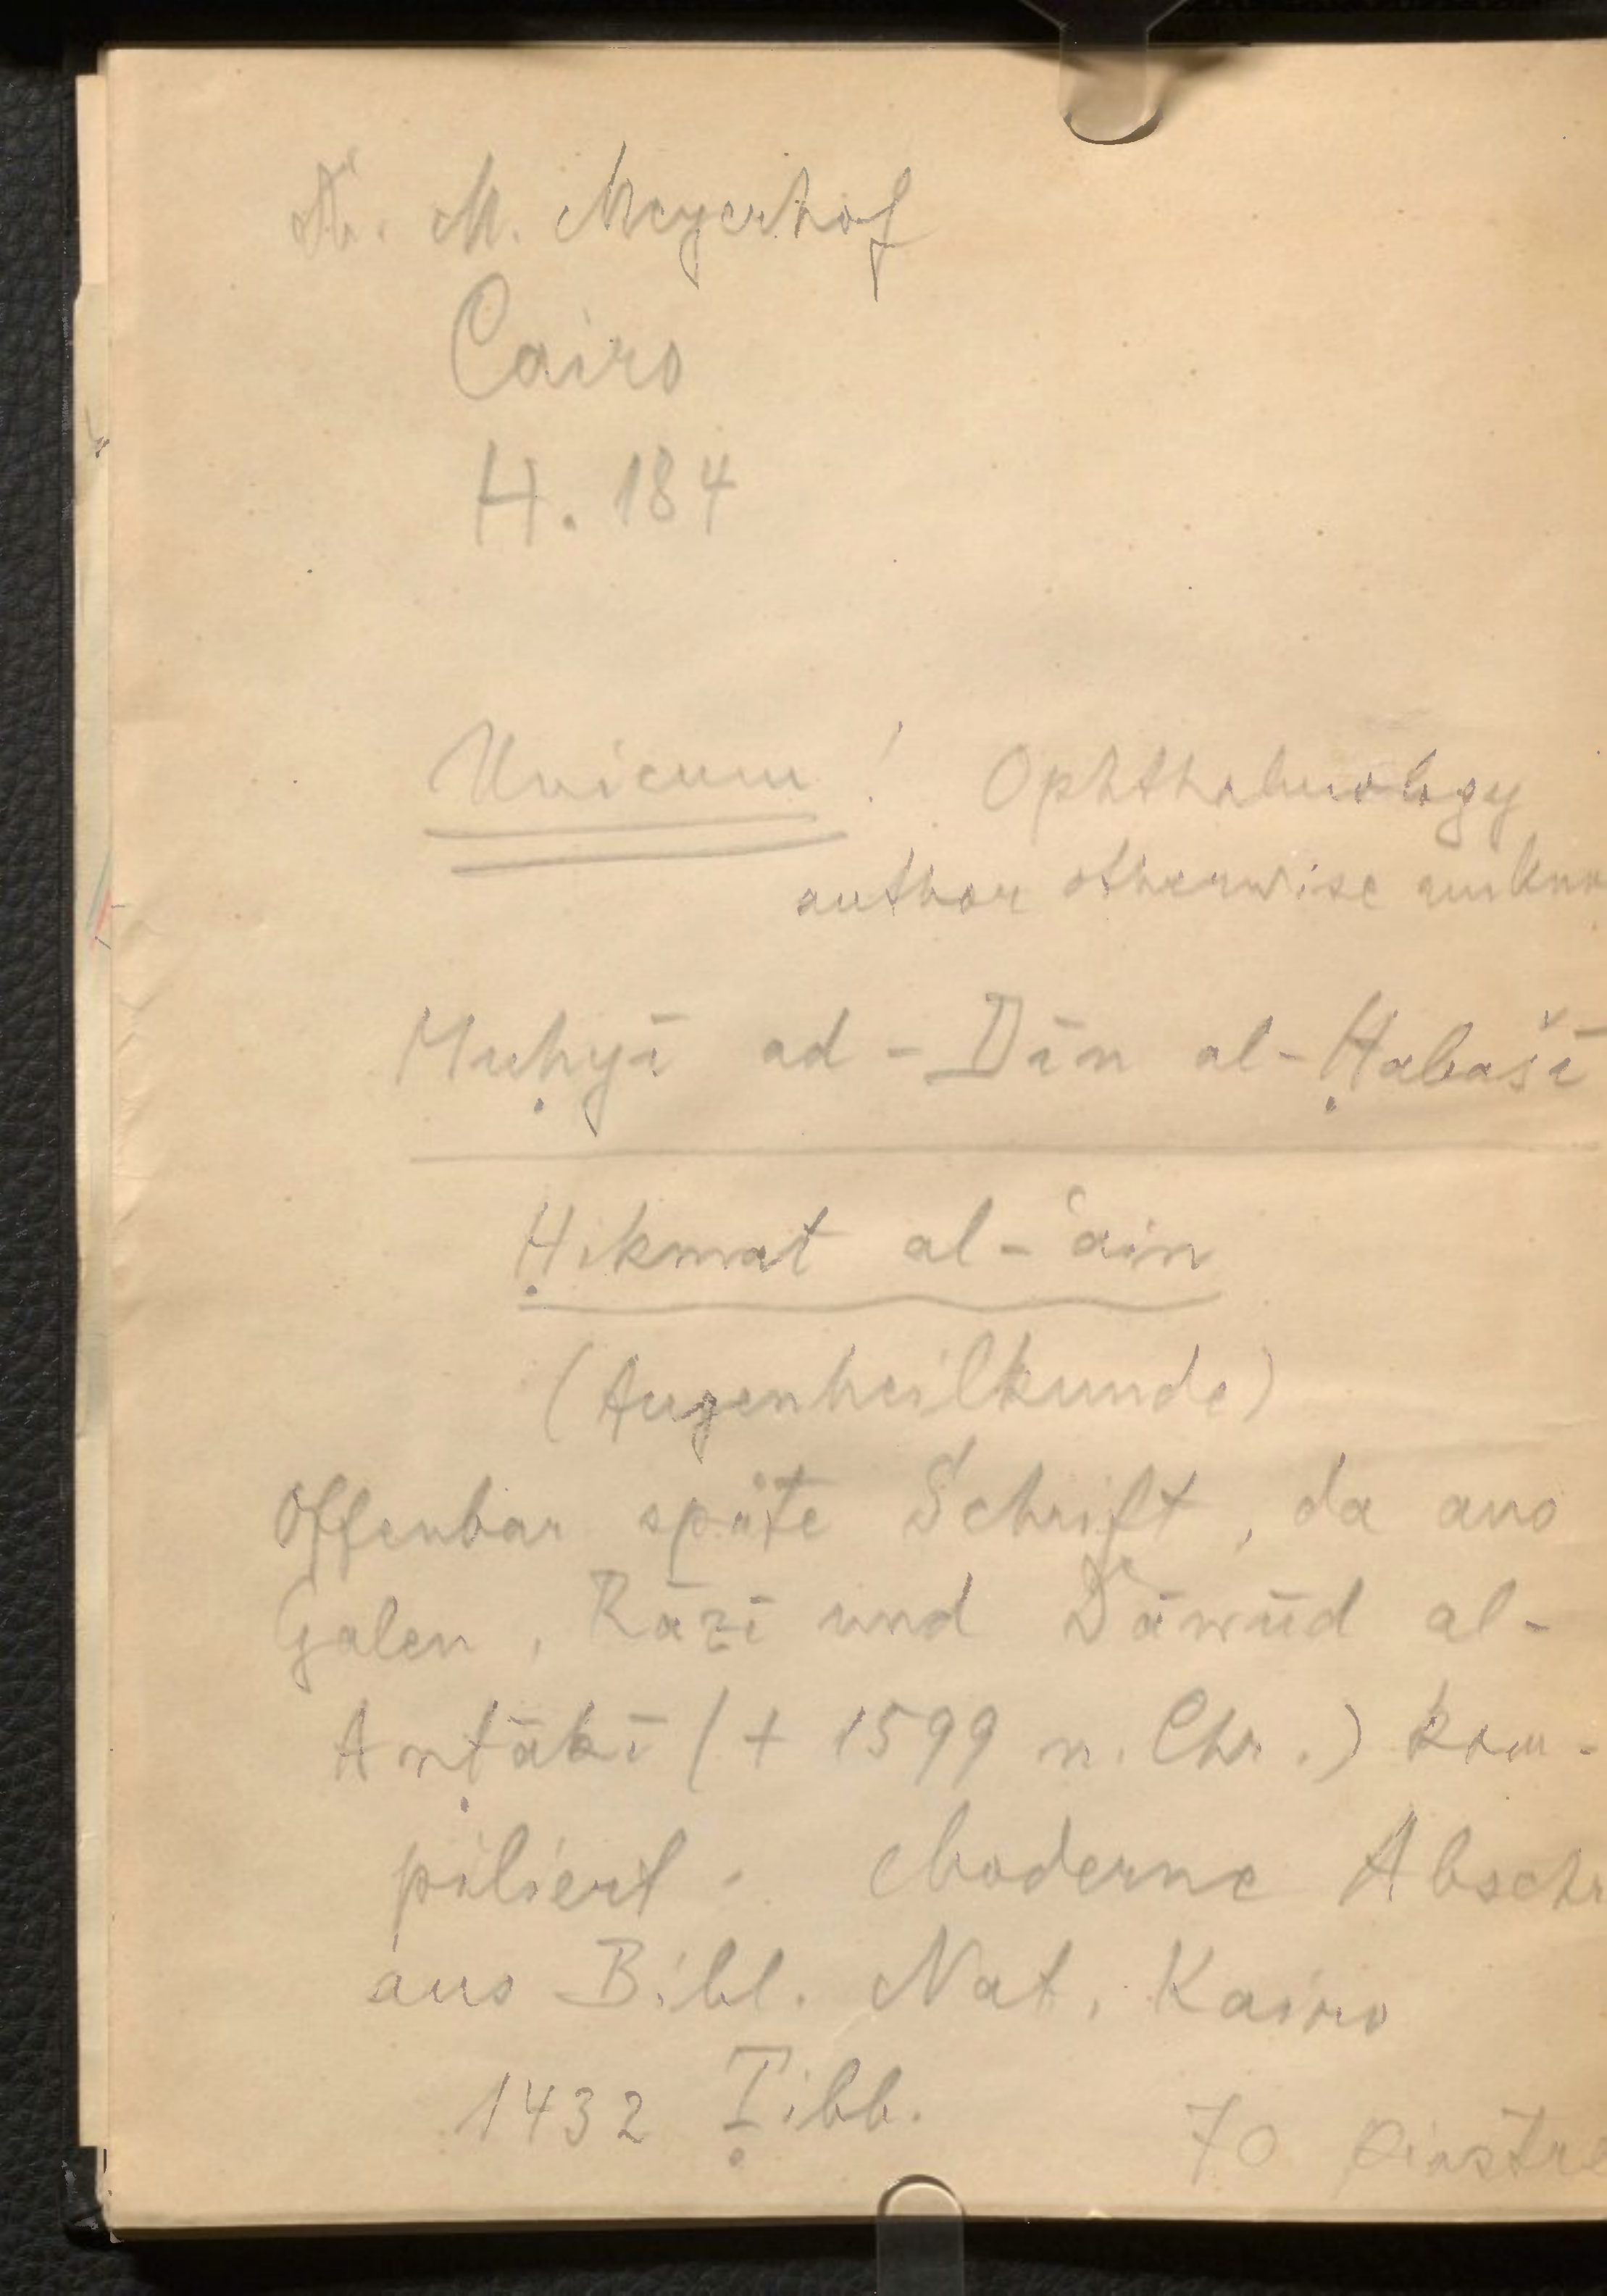 Dr. M. Meyerhof
Cairo
H. 184
Unicum! Ophthalmology
author otherwise unkno
Muḥyī ad-Dīn al-Ḥabašī
Ḥikmat al-ʿain
(Augenheilkunde)
Offenbar späte Schrift, da aus
Galen, Rāzī und Dāwūd al-
Anṭākī († 1599 n. Chr.) kom-
piliert. Moderne Abschr
aus Bibl. Nat. Kairo
1432 Ṭibb.
70 Piastre